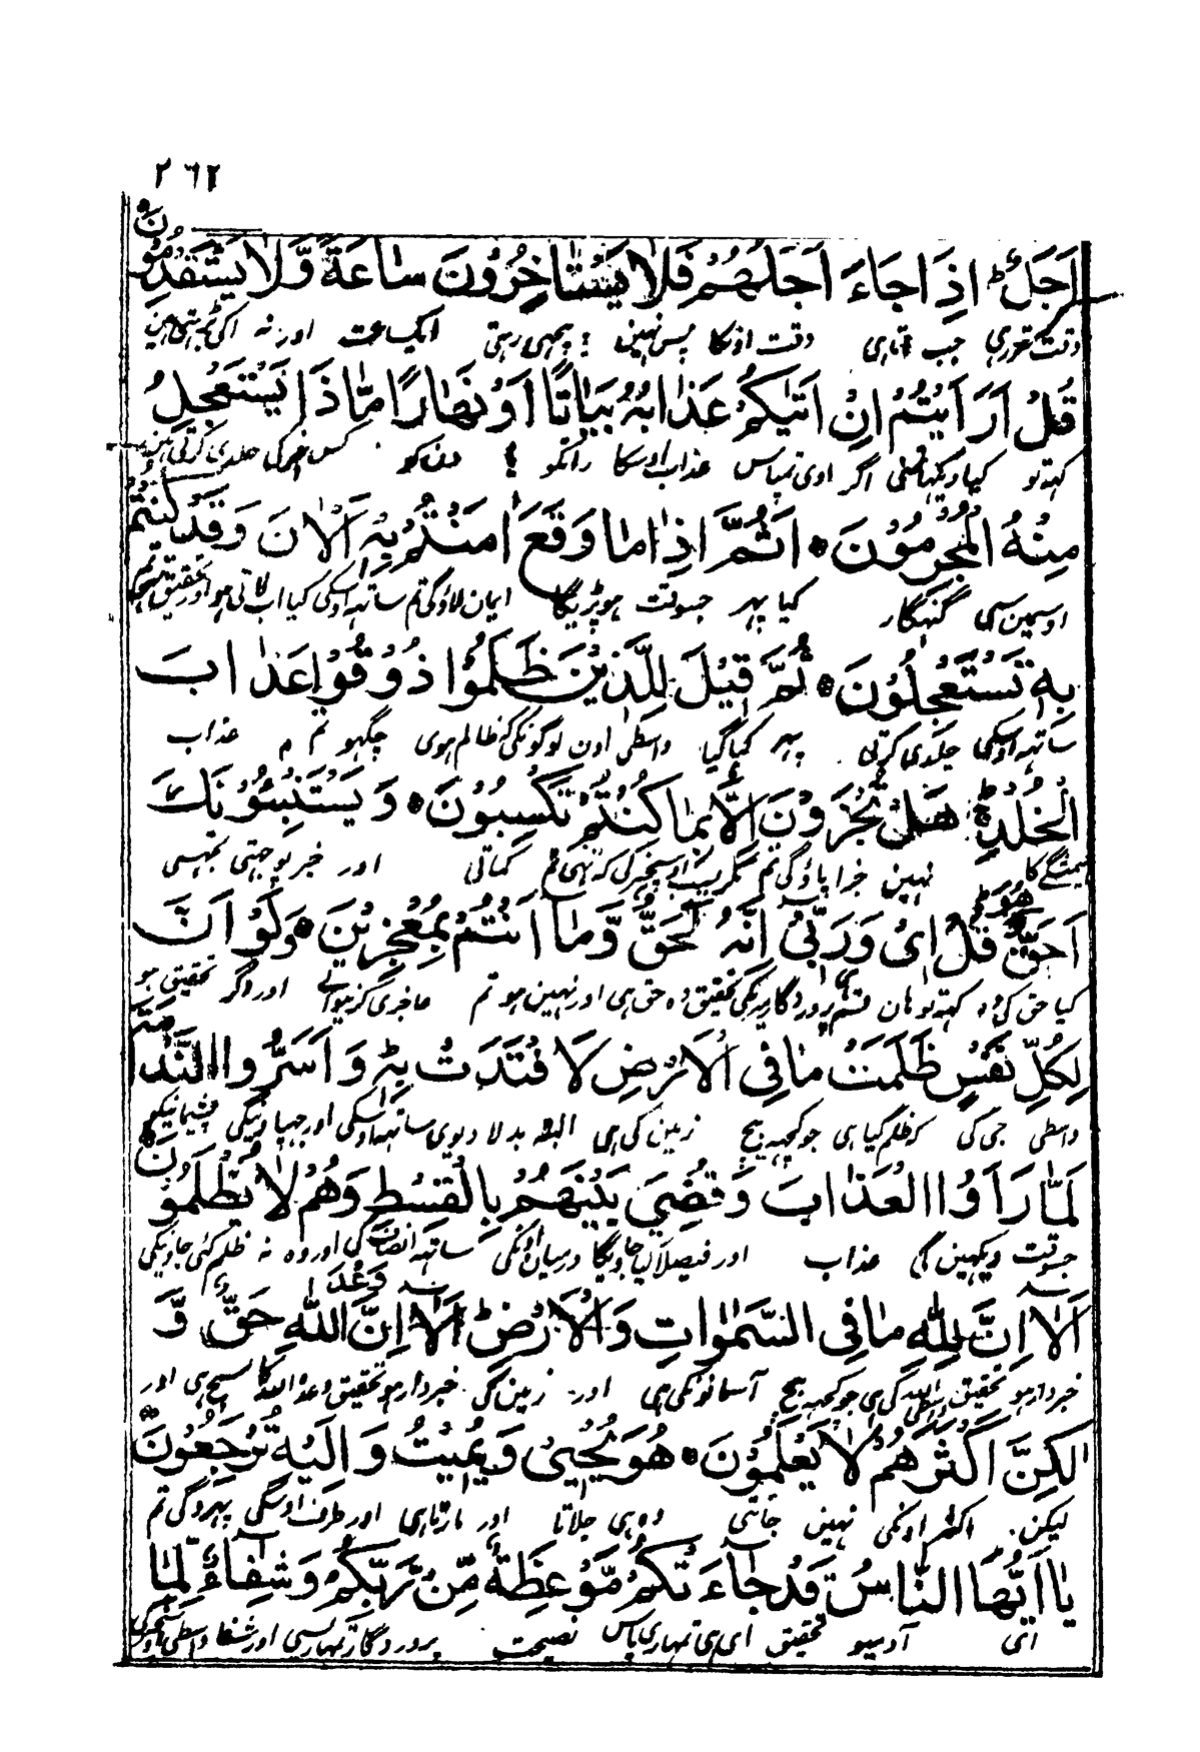 ٢٦٢
اَجَلٌ ؕ اِذَا جَاءَ اَجَلُهُمْ فَلَا يَسْتَاخِرُوْنَ سَاعَةً وَّلَا يَسْتَقْدِمُوْنَ
وقت مقرری جب آتاہی وقت اونکا پس نہین پیچھی رہتی ایک ساعت اور نہ آگی بڑہتی ہین
قُلْ اَرَاَيْتُمْ اِنْ اَتٰيكُمْ عَذَابُهٗ بَيَاتًا اَوْ نَهَارًا مَّاذَا يَسْتَعْجِلُ
کہہ تو کیا دیکہا تمنی اگر اوی تمپاس عذاب اوسکا راتکو یا دن کو کس چیز کی جلدی کرتی ہین
مِنْهُ الْمُجْرِمُوْنَ ۝ اَثُمَّ اِذَا مَا وَقَعَ اٰمَنْتُمْ بِهٖ آلْاٰنَ وَقَدْ كُنْتُمْ
اوسمین سی گنہگار کیا پہر جسوقت ہو پڑیگا ایمان لاؤگی تم ساتہہ اوسکی کیا اب لاتی ہو اور تحقیق تہی تم
بِهٖ تَسْتَعْجِلُوْنَ ۝ ثُمَّ قِيْلَ لِلَّذِيْنَ ظَلَمُوْا ذُوْقُوْا عَذَابَ
ساتہہ اوسکی جلدی کرتی پہر کہا گیا واسطی اون لوگونکی کہ ظالم ہوی چکہو تم عذاب
الْخُلْدِ ۚ هَلْ تُجْزَوْنَ اِلَّا بِمَا كُنْتُمْ تَكْسِبُوْنَ ۝ وَيَسْتَنْبِئُوْنَكَ
ہمیشگی کا نہین جزا پاؤگی تم مگر بسبب اوسچیز کی کہ تہی تم کماتی اور خبر پوچہتی تجہسی
اَحَقٌّ هُوَ ؕ قُلْ اِيْ وَرَبِّيْ اِنَّهٗ لَحَقٌّ وَّمَا اَنْتُمْ بِمُعْجِزِيْنَ ۝ وَلَوْ اَنَّ
کیا حق کی وہ کہہ تو ہان قسم ہی پروردگار میریکی تحقیق وہ حق ہی اور نہین ہو تم عاجزی کرنیوالے اور اگر تحقیق ہو
لِكُلِّ نَفْسٍ ظَلَمَتْ مَا فِى الْاَرْضِ لَافْتَدَتْ بِهٖ ؕ وَاَسَرُّوا النَّدَامَةَ
واسطی جی کی کہ ظلم کیا ہی جو کچہہ بیچ زمین کی ہی البتہ بدلا دیوی ساتہہ اوسکی اور چہپاوینگی پشیمانیکو
لَمَّا رَاَوُا الْعَذَابَ وَقُضِيَ بَيْنَهُمْ بِالْقِسْطِ وَهُمْ لَا يُظْلَمُوْنَ
جسوقت دیکہین گی عذاب اور فیصلا کیا جاویگا درمیان اونکی ساتہہ انصاف کی اور وہ نہ ظلم کئی جاوینگی
اَلَا اِنَّ لِلّٰهِ مَا فِى السَّمٰوٰاتِ وَالْاَرْضِ ؕ اَلَا اِنَّ وَعْدَ اللّٰهِ حَقٌّ وَّ
خبردار ہو تحقیق واسطی اللہ کی ہی جو کچہہ بیچ آسمانونکی ہی اور زمین کی خبردار ہو تحقیق وعدہ اللہ کا سچ ہی اور
لٰكِنَّ اَكْثَرَهُمْ لَا يَعْلَمُوْنَ ۝ هُوَ يُحْيِيْ وَيُمِيْتُ وَاِلَيْهِ تُرْجَعُوْنَ
لیکن اکثر اونکی نہین جانتی وہ ہی جلاتا اور مارتا ہی اور طرف اوسکی پہیروگی تم
يٰا اَيُّهَا النَّاسُ قَدْ جَآءَتْكُمْ مَّوْعِظَةٌ مِّنْ رَّبِّكُمْ وَشِفَآءٌ لِّمَا
ای آدمیو تحقیق ای ہی تمہاری پاس نصیحت پروردگار تمہاریسی اور شفا واسطی